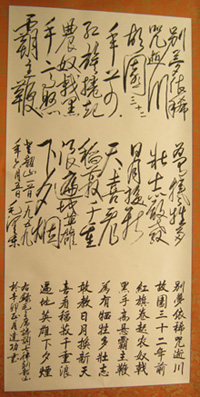 别梦依稀
咒逝川
故園三十二
年前
红旗捲起
農奴戟黑
手高懸
霸主鞭
為有犧牲多
壮志敢教
日月換新
天喜看
稻菽千重
浪遍地英雄
下夕烟
別夢依稀咒逝川
故園三十二年前
紅旗卷起農奴戟
黑手高懸霸主鞭
為有犧牲多壮志
敢教日月換新天
喜看稻菽千重浪
遍地英雄下夕烟